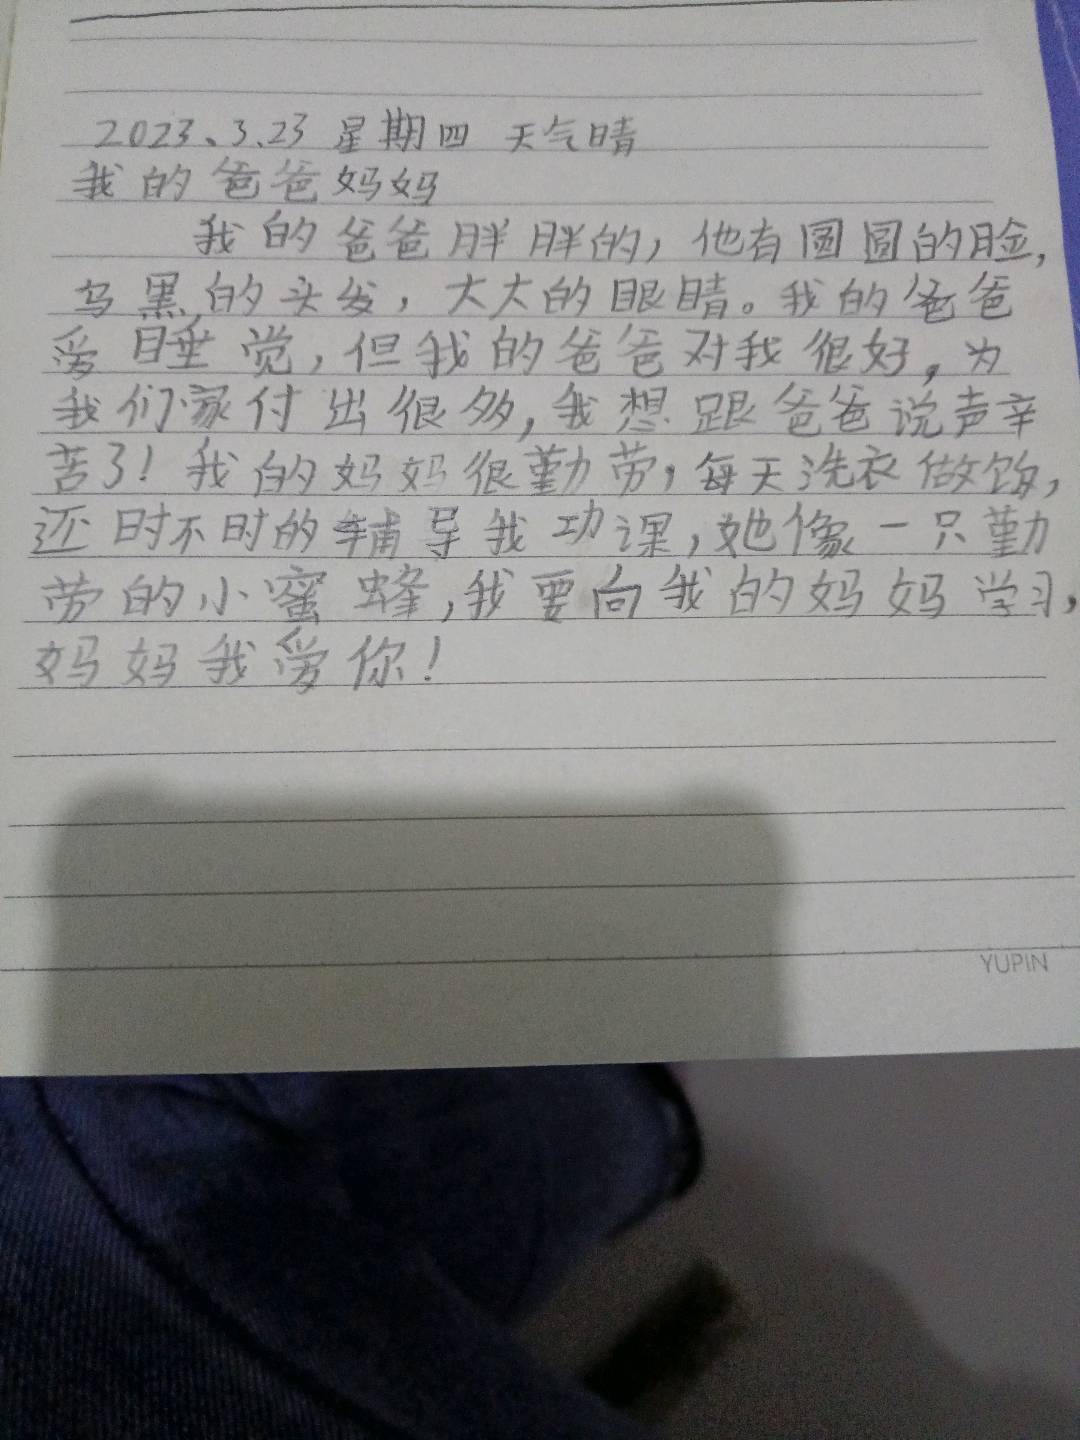 2023、3.23 星期四 天气晴
我的爸爸妈妈
我的爸爸胖胖的，他有圆圆的脸，
乌黑的头发，大大的眼睛。我的爸爸
爱睡觉，但我的爸爸对我很好，为
我们家付出很多，我想跟爸爸说声辛
苦了！我的妈妈很勤劳，每天洗衣做饭，
还时不时的辅导我功课，她像一只勤
劳的小蜜蜂，我要向我的妈妈学习，
妈妈我爱你！
YUPIN